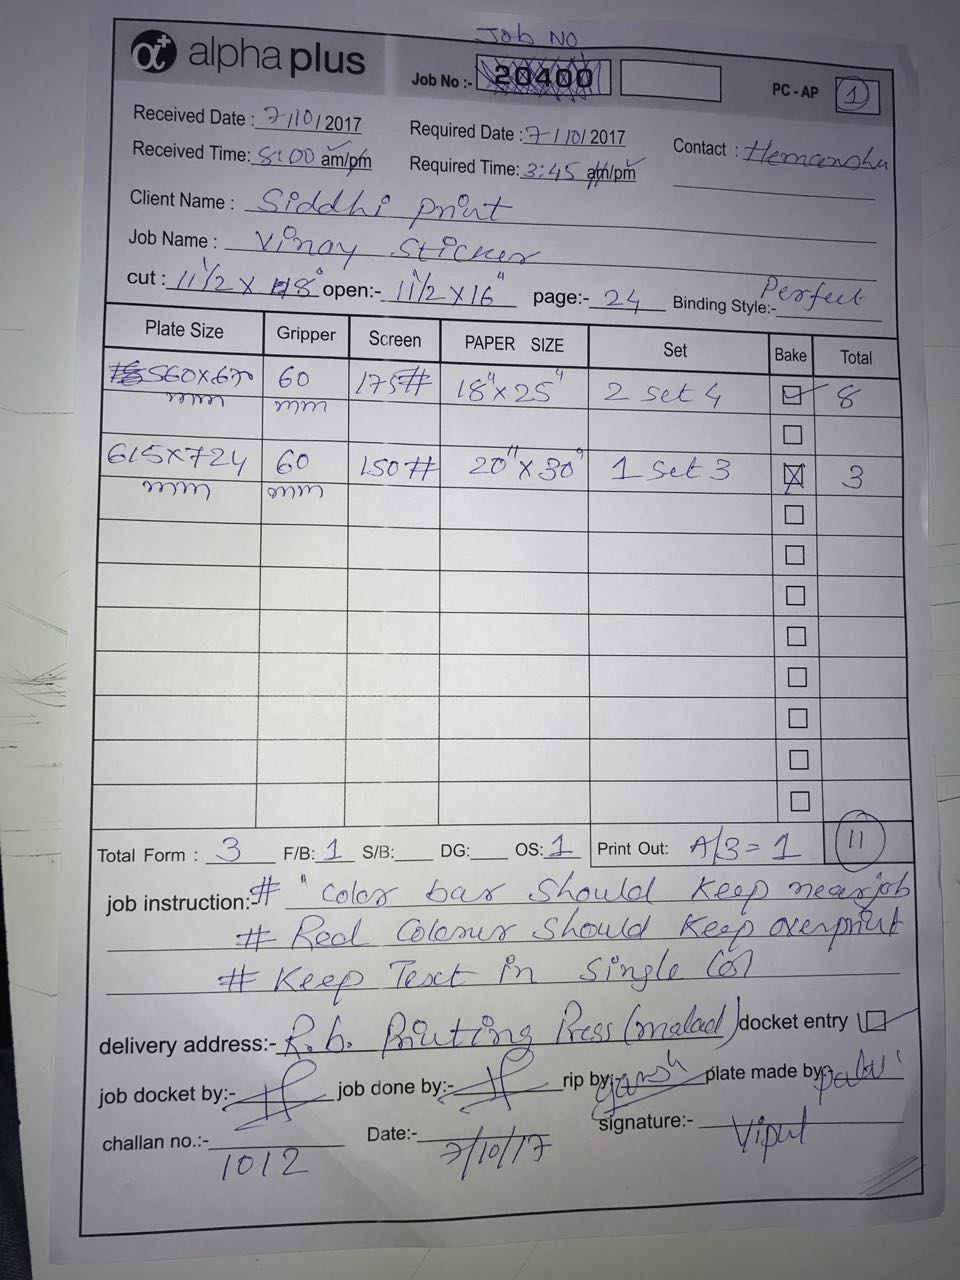 Job No
alpha plus
Job No :- 20400
PC - AP 1
Received Date : 7/10/2017
Required Date : 7/10/2017
Contact : Hemanshu
Received Time: 8:00 am/pm
Required Time: 3:45 am/pm
Client Name : Siddhi Print
Job Name : Vinay Sticker
cut : 11 1/2 X 8" open:- 11 1/2 X 16" page:- 24 Binding Style:- Perfect
Plate Size Gripper Screen PAPER SIZE Set Bake Total
560X670 60 175# 18" X 25" 2 set 4 8
mm mm
615X724 60 150# 20" X 30" 1 Set 3 3
mm mm
Total Form : 3 F/B: 1 S/B: DG: OS: 1 Print Out: A/3 = 1 11
job instruction:- # " Color bar Should Keep near job
# Red Colour Should Keep overprint
# Keep Text in Single
delivery address:- R.b. Printing Press (malad) docket entry
job docket by:- job done by:- rip by:- plate made by:-
challan no.:- 1012 Date:- 7/10/17 signature:- Vipul